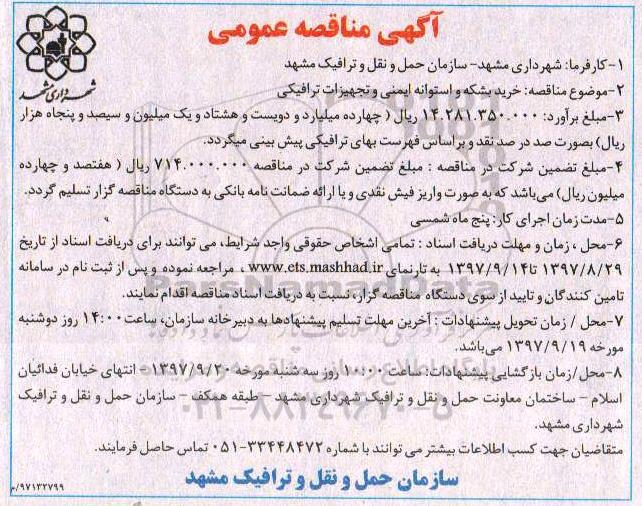 آگهی مناقصه عمومی
شهرداری مشهد
۱-کارفرما: شهرداری مشهد- سازمان حمل و نقل و ترافیک مشهد
۲-موضوع مناقصه: خرید بشکه و استوانه ایمنی و تجهیزات ترافیکی
۳-مبلغ برآورد: ۱۴.۲۸۱.۳۵۰.۰۰۰ ریال ( چهارده میلیارد و دویست و هشتاد و یک میلیون و سیصد و پنجاه هزار
ریال) بصورت صد در صد نقد و براساس فهرست بهای ترافیکی پیش بینی میگردد.
۴-مبلغ تضمین شرکت در مناقصه : مبلغ تضمین شرکت در مناقصه ۷۱۴.۰۰۰.۰۰۰ ریال ( هفتصد و چهارده
میلیون ریال) می‌باشد که به صورت واریز فیش نقدی و یا ارائه ضمانت نامه بانکی به دستگاه مناقصه گزار تسلیم گردد.
۵-مدت زمان اجرای کار: پنج ماه شمسی
۶-محل ، زمان و مهلت دریافت اسناد : تمامی اشخاص حقوقی واجد شرایط، می توانند برای دریافت اسناد از تاریخ
۱۳۹۷/۸/۲۹ تا ۱۳۹۷/۹/۱۴ به تارنمای www.ets.mashhad.ir ، مراجعه نموده و پس از ثبت نام در سامانه
تامین کنندگان و تایید از سوی دستگاه مناقصه گزار، نسبت به دریافت اسناد مناقصه اقدام نمایند.
۷-محل / زمان تحویل پیشنهادات : آخرین مهلت تسلیم پیشنهادها به دبیرخانه سازمان، ساعت ۱۴:۰۰ روز دوشنبه
مورخه ۱۳۹۷/۹/۱۹ می‌باشد.
۸-محل/زمان بازگشایی پیشنهادات: ساعت ۱۰:۰۰ روز سه شنبه مورخه ۱۳۹۷/۹/۲۰ - انتهای خیابان فدائیان
اسلام - ساختمان معاونت حمل و نقل و ترافیک شهرداری مشهد - طبقه همکف - سازمان حمل و نقل و ترافیک
شهرداری مشهد.
متقاضیان جهت کسب اطلاعات بیشتر می توانند با شماره ۳۳۴۴۸۴۷۲-۰۵۱ تماس حاصل فرمایند.
سازمان حمل و نقل و ترافیک مشهد
۹۷۱۳۲۷۹۹/م
ParsNamadData
۰۲۱-۸۸۳۴۹۶۷۰-۵